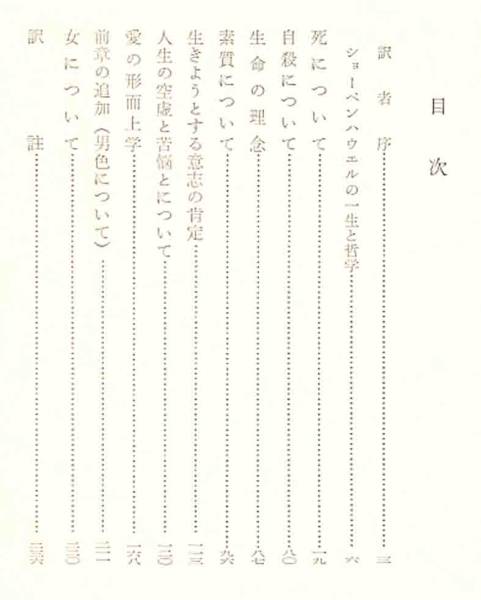 目次
訳者序……三
ショーペンハウエルの一生と哲学……六
死について……一九
自殺について……八〇
生命の理念……八七
素質について……九六
生きようとする意志の肯定……一一三
人生の空虚と苦悩とについて……一三〇
愛の形而上学……一六八
前章の追加(男色について)……二一一
女について……二二〇
訳註……二三六